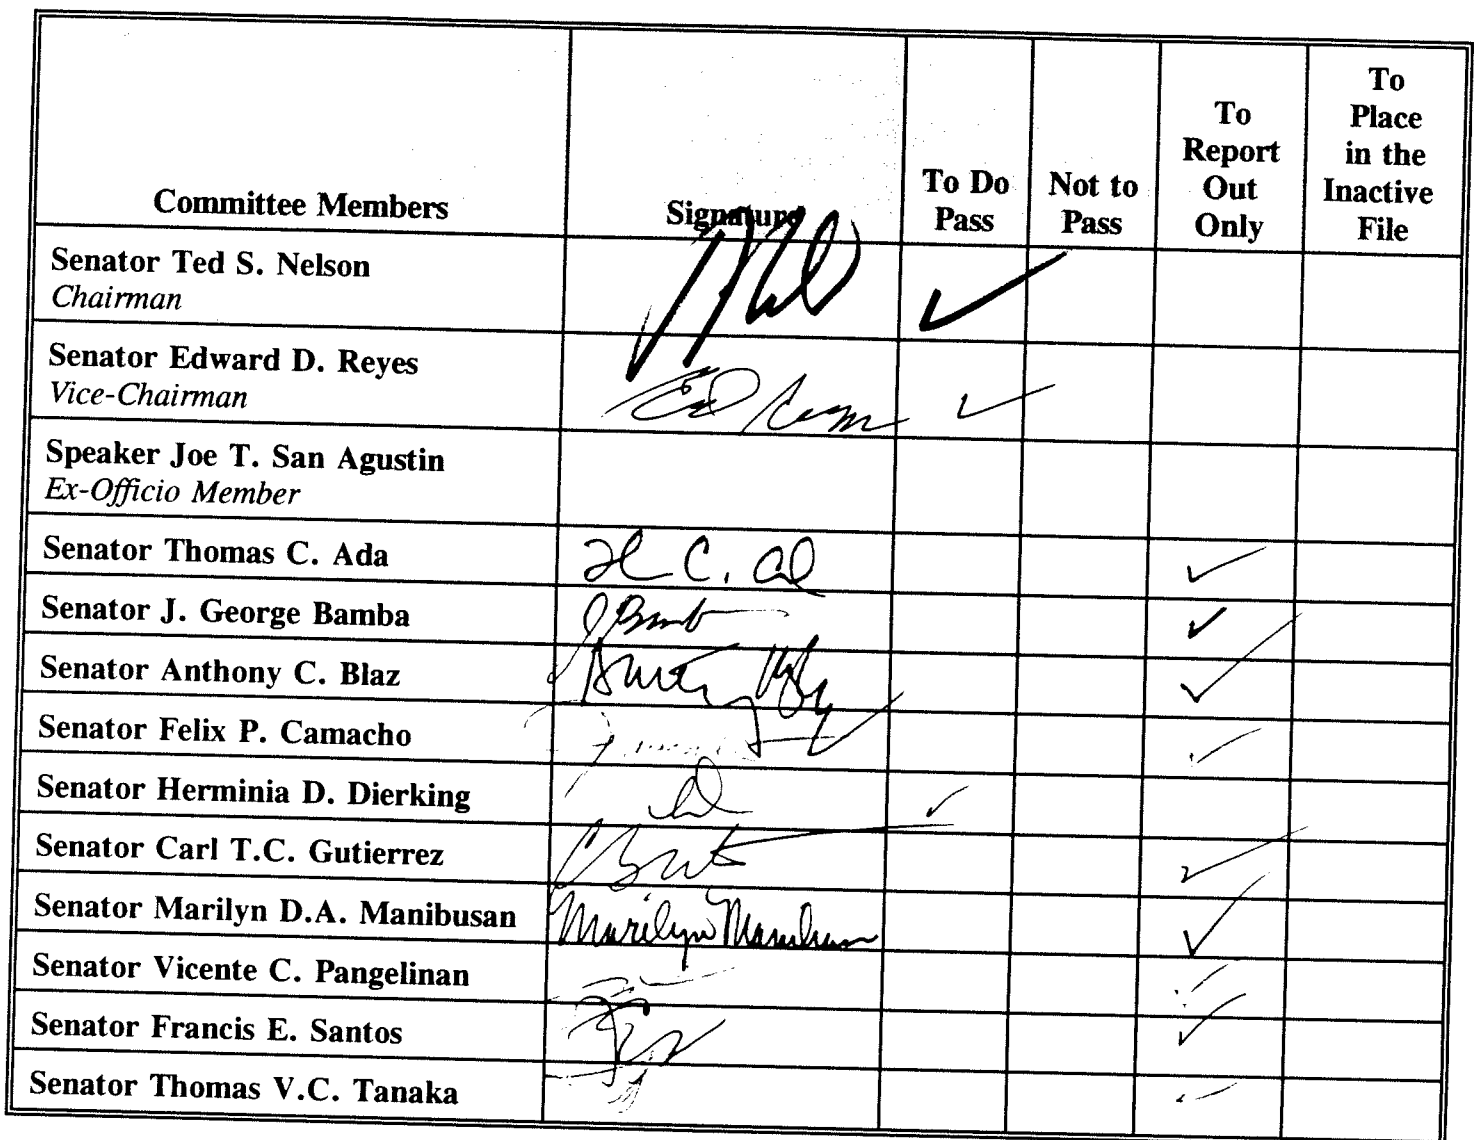 Committee Members
Signature
To Do
Pass
Not to
Pass
To
Report
Out
Only
To
Place
in the
Inactive
File
Senator Ted S. Nelson
Chairman
✓
Senator Edward D. Reyes
Vice-Chairman
Ed Reyes ✓
Speaker Joe T. San Agustin
Ex-Officio Member
Senator Thomas C. Ada ✓
Senator J. George Bamba ✓
Senator Anthony C. Blaz ✓
Senator Felix P. Camacho ✓
Senator Herminia D. Dierking ✓
Senator Carl T.C. Gutierrez ✓
Senator Marilyn D.A. Manibusan Marilyn Manibusan ✓
Senator Vicente C. Pangelinan ✓
Senator Francis E. Santos ✓
Senator Thomas V.C. Tanaka ✓